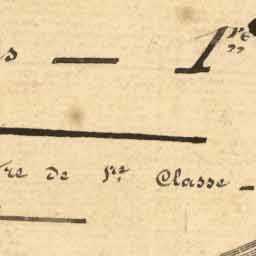 s — 1re
re de 1re Classe —